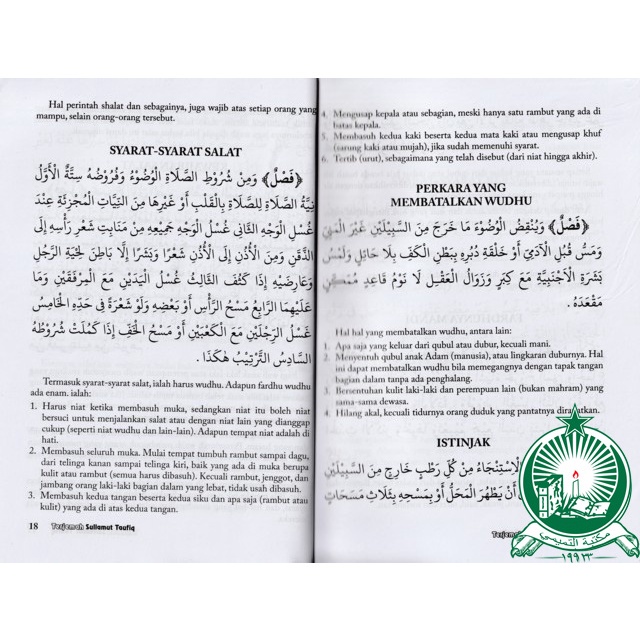 Hal perintah shalat dan sebagainya, juga wajib atas setiap orang yang
mampu, selain orang-orang tersebut.
SYARAT-SYARAT SALAT
﴿فَصْلٌ﴾ وَمِنْ شُرُوْطِ الصَّلَاةِ الْوُضُوْءُ وَفُرُوْضُهُ سِتَّةٌ الْأَوَّلُ
نِيَّةُ الصَّلَاةِ لِلصَّلَاةِ بِالْقَلْبِ أَوْ غَيْرِهَا مِنَ النِّيَّاتِ الْمُجْزِئَةِ عِنْدَ
غُسْلِ الْوَجْهِ الثَّانِي غُسْلُ الْوَجْهِ جَمِيْعِهِ مِنْ مَنَابِتِ شَعْرِ رَأْسِهِ إِلَى
الذَّقَنِ وَمِنَ الْأُذُنِ إِلَى الْأُذُنِ شَعْرًا وَبَشَرًا إِلَّا بَاطِنَ لِحْيَةِ الرَّجُلِ
وَعَارِضَيْهِ إِذَا كَثُفَتْ الثَّالِثُ غُسْلُ الْيَدَيْنِ مَعَ الْمِرْفَقَيْنِ وَمَا
عَلَيْهِمَا الرَّابِعُ مَسْحُ الرَّأْسِ أَوْ بَعْضِهِ وَلَوْ شَعْرَةً فِي حَدِّهِ الْخَامِسُ
غَسْلُ الرِّجْلَيْنِ مَعَ الْكَعْبَيْنِ أَوْ مَسْحُ الْخُفِّ إِذَا كَمُلَتْ شُرُوْطُهُ
السَّادِسُ التَّرْتِيْبُ هٰكَذَا .
Termasuk syarat-syarat salat, ialah harus wudhu. Adapun fardhu wudhu
ada enam. ialah:
1. Harus niat ketika membasuh muka, sedangkan niat itu boleh niat
bersuci untuk menjalankan salat atau dengan niat lain yang dianggap
cukup (seperti niat wudhu dan lain-lain). Adapun tempat niat adalah di
hati.
2. Membasuh seluruh muka. Mulai tempat tumbuh rambut sampai dagu,
dari telinga kanan sampai telinga kiri, baik yang ada di muka berupa
kulit atau rambut (semua harus dibasuh). Kecuali rambut, jenggot, dan
jambang orang laki-laki bagian dalam yang lebat, tidak usah dibasuh.
3. Membasuh kedua tangan beserta kedua siku dan apa saja (rambut atau
kulit) yang ada di atas kedua tangan.
18 Terjemah Sullamut Taufiq
4. Mengusap kepala atau sebagian, meski hanya satu rambut yang ada di
batas kepala.
5. Membasuh kedua kaki beserta kedua mata kaki atau mengusap khuf
(sarung kaki atau mujah), jika sudah memenuhi syarat.
6. Tertib (urut), sebagaimana yang telah disebut (dari niat hingga akhir).
PERKARA YANG
MEMBATALKAN WUDHU
﴿فَصْلٌ﴾ وَيُنْقِضُ الْوُضُوْءَ مَا خَرَجَ مِنَ السَّبِيْلَيْنِ غَيْرَ الْمَنِيِّ
وَمَسُّ قُبُلِ الْآدَمِيِّ أَوْ حَلْقَةِ دُبُرِهِ بِبَطْنِ الْكَفِّ بِلَا حَائِلٍ وَلَمْسُ
بَشَرَةِ الْأَجْنَبِيَّةِ مَعَ كِبَرٍ وَزَوَالُ الْعَقْلِ لَا نَوْمُ قَاعِدٍ مُمَكِّنٍ
مَقْعَدَهُ .
Hal hal yang membatalkan wudhu, antara lain:
1. Apa saja yang keluar dari qubul atau dubur, kecuali mani.
2. Menyentuh qubul anak Adam (manusia), atau lingkaran duburnya. Hal
ini dapat membatalkan wudhu bila memegangnya dengan tapak tangan
bagian dalam tanpa ada penghalang.
3. Bersentuhan kulit laki-laki dan perempuan lain (bukan mahram) yang
sama-sama dewasa.
4. Hilang akal, kecuali tidurnya orang duduk yang pantatnya dirapatkan.
ISTINJAK
الْاِسْتِنْجَاءُ مِنْ كُلِّ رَطْبٍ خَارِجٍ مِنَ السَّبِيْلَيْنِ
أَنْ يَطْهُرَ الْمَحَلُّ أَوْ بِمَسْحِهِ بِثَلَاثِ مَسَحَاتٍ
مكتبة التميمي
١٩٩٣